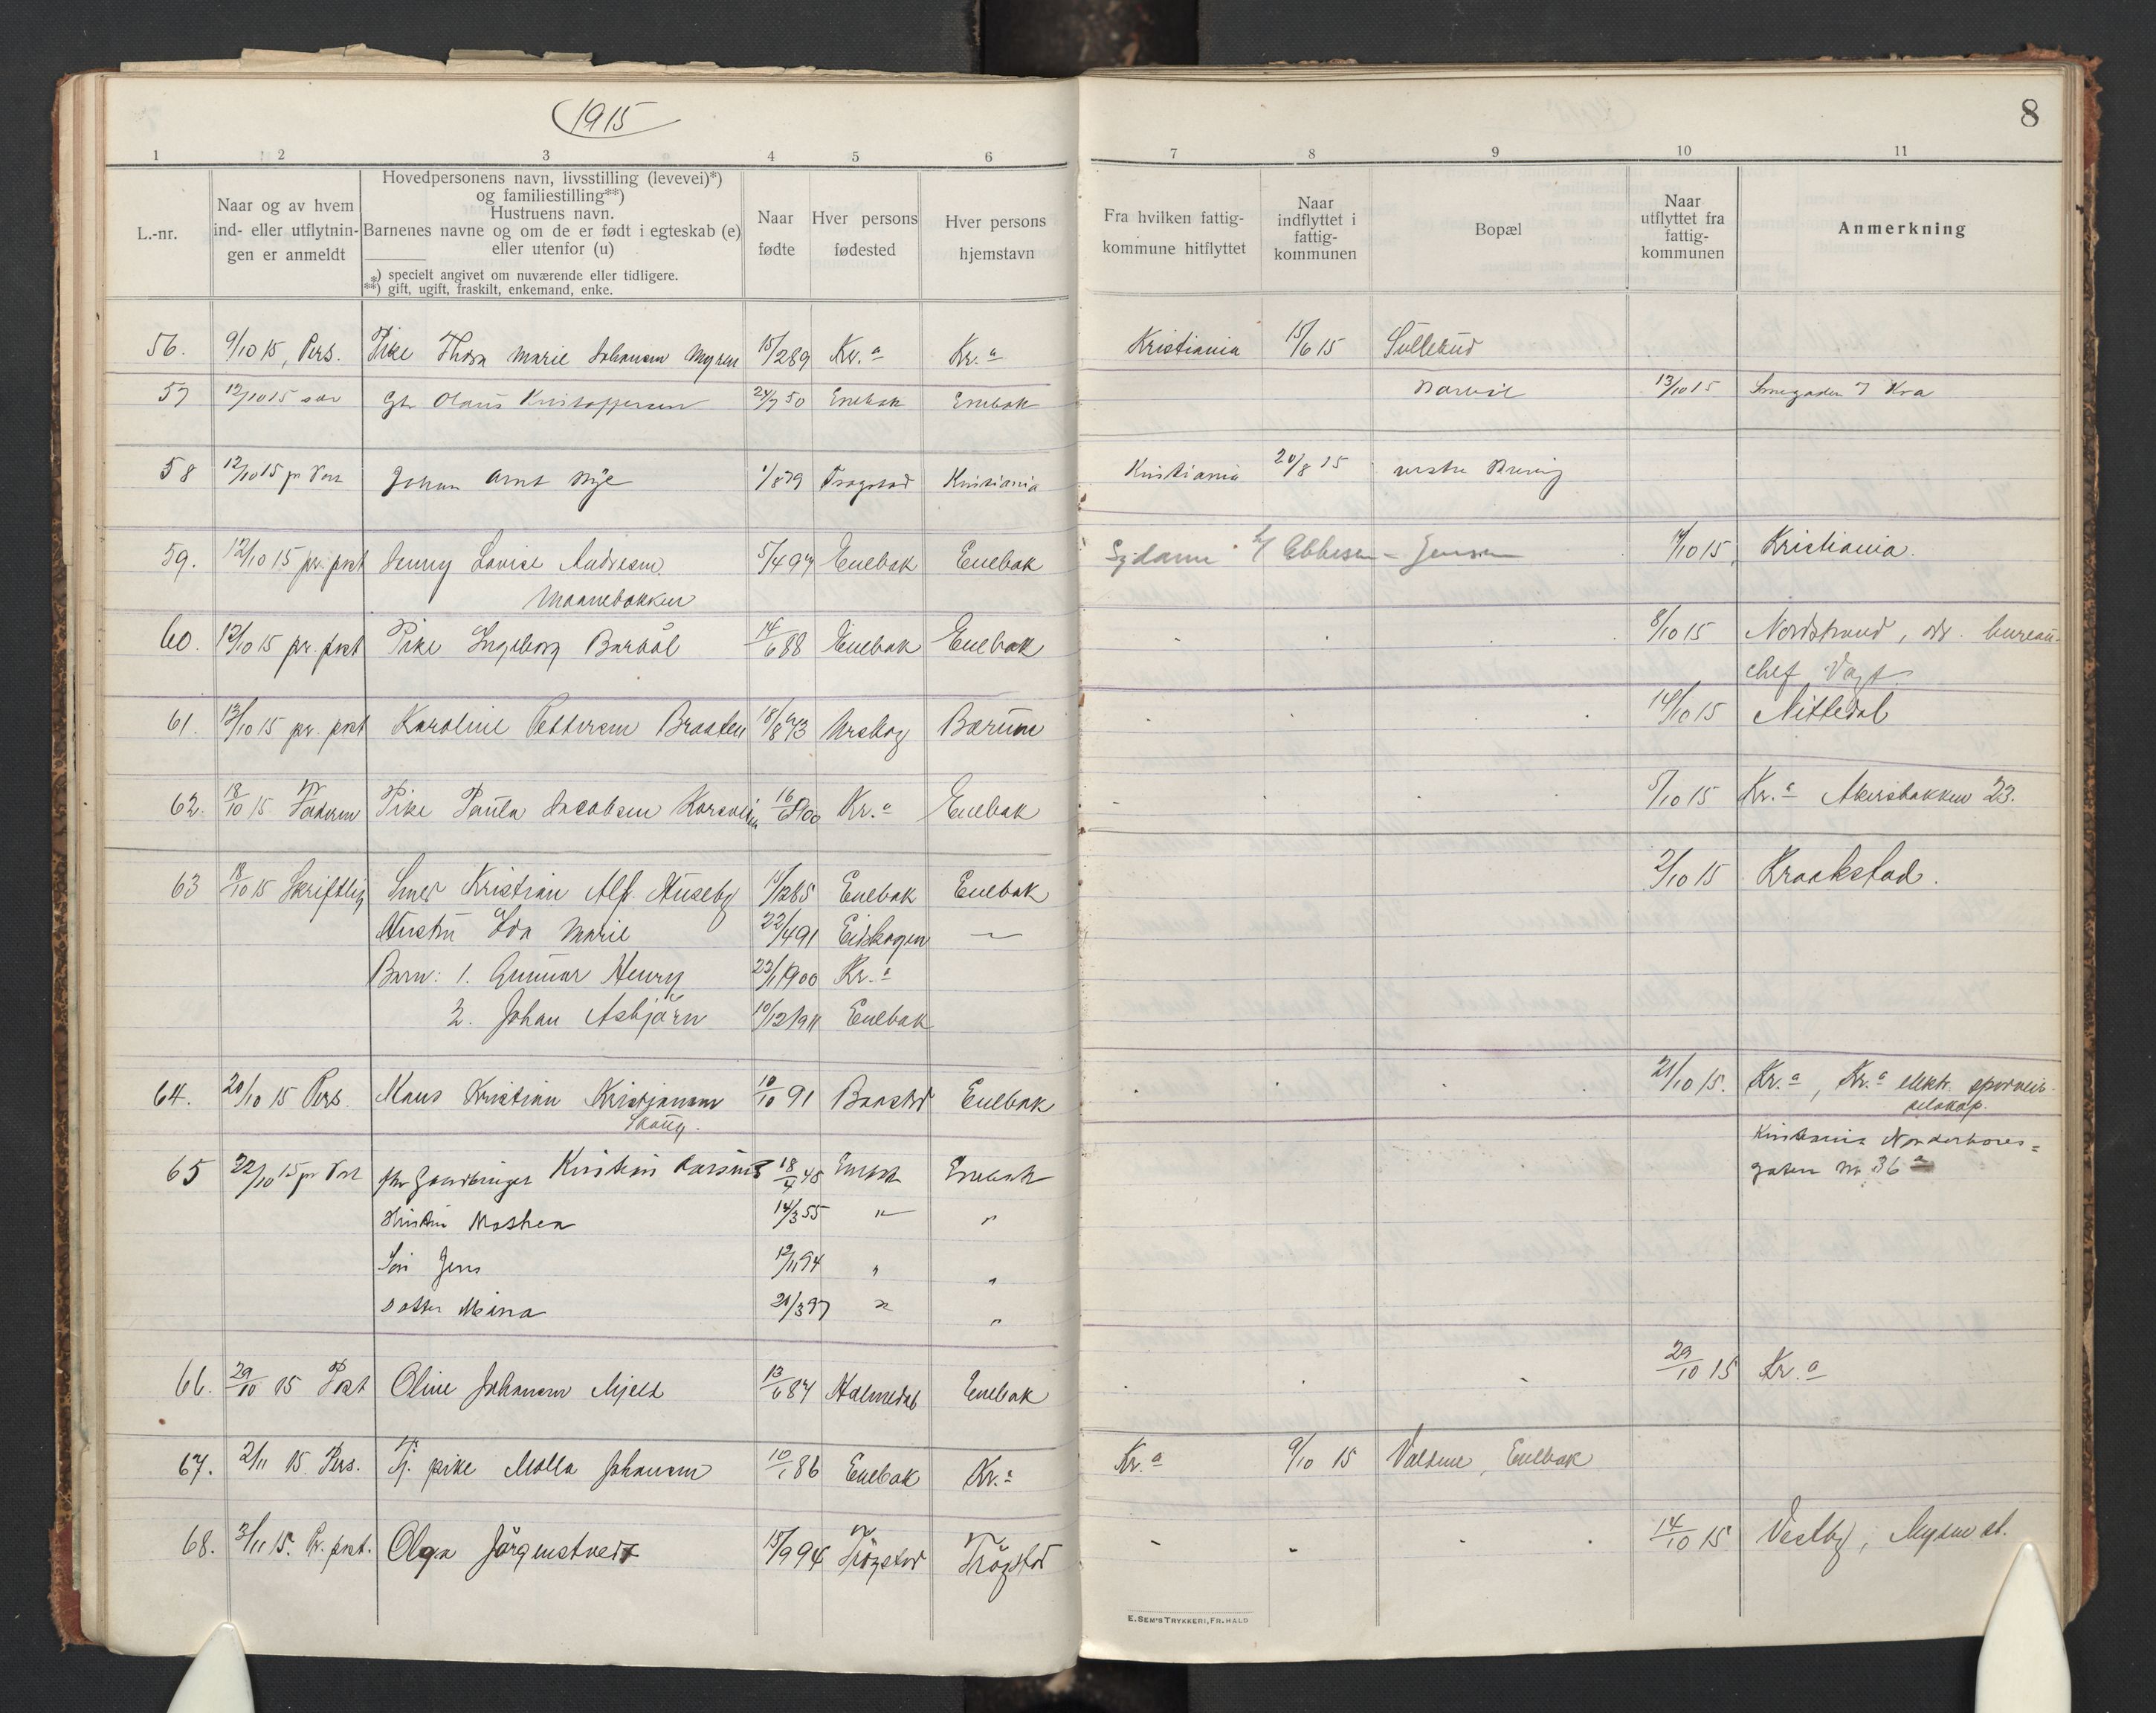 1915
8
1 2 3 4 5 6 7 8 9 10 11
L.-nr.
Naar og av hvem
ind- eller utflytnin-
gen er anmeldt
Hovedpersonens navn, livsstilling (levevei)*)
og familiestilling**)
Hustruens navn.
Barnenes navne og om de er født i egteskab (e)
eller utenfor (u)
*) specielt angivet om nuværende eller tidligere.
**) gift, ugift, fraskilt, enkemand, enke.
Naar
fødte
Hver persons
fødested
Hver persons
hjemstavn
Fra hvilken fattig-
kommune hitflyttet
Naar
indflyttet i
fattig-
kommunen
Bopæl
Naar
utflyttet fra
fattig-
kommunen
Anmerkning
56. 9/10 15, Pers. Pike Thora Marie Johansen Myren 15/2 89 Kr.a Kr.a Kristiania 15/6 15
57 12/10 15 Olaus Kristoffersen 24/7 50 Enebak Enebak 13/10 15 7 Kra
58 12/10 15 pr Post Johan Arnt Nye 1/8 79 Trøgstad Kristiania Kristiania 20/8 15
59. 12/10 15 pr. post Jenny Lovise Andresen 5/4 97 Enebak Enebak Ebbesen - Jensen 1/10 15 Kristiania.
Maanebakken
60. 12/10 15 pr. post Pike Ingeborg Barbøl 14/6 88 Enebak Enebak 8/10 15 Nordstrand, adr. bureau-
chef Vogt
61. 13/10 15 pr. post Karoline Pettersen Braaten 18/8 43 Urskog Bærum 14/10 15 Nittedal
62. 18/10 15 Faderen Pike Paula Jacobsen 16/6 900 Kr.a Enebak 5/10 15 Kr.a Akersbakken 23.
63 18/10 15 Skriftlig Smed Kristian Alf. Huseby 11/12 85 Enebak Enebak 2/10 15 Kraakstad.
Hustru Ida Marie 22/4 91 Eidskogen —
Barn: 1. Gunnar Henry 23/1 1900 Kr.a
2. Johan Asbjørn 10/12 1911 Enebak
64. 20/10 15 Pers. Hans Kristian Kristiansen 10/10 91 Baastad Enebak 21/10 15. Kr.a, Kr.a elektr. sporveis
Skaug. selskap.
65 22/10 15 pr Post Kristian Larsen 18/4 48 Enebak Enebak Kristiania
gaten No 36 a
Hustru Mathea 14/3 55 " "
Søn Jens 12/11 94 " "
Datter Mina 20/3 97 " "
66. 29/10 15 Post Oline Johansen Mjeld 13/6 84 Enebak 29/10 15 Kr.a
67. 2/11 15 Pers. Tj. pike Molla Johansen 10/1 86 Enebak Kr.a Kr.a 9/10 15 Enebak
68. 3/11 15. Pr. post. Olga Jørgenstvedt 15/9 94 Trøgstad Trøgstad 14/10 15 Vestby, Mysen st.
E. SEM'S TRYKKERI, FR.HALD